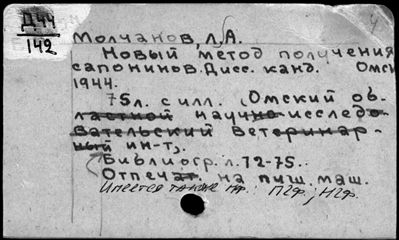 Д44
142
Молчанов, Л.А.
Новый метод получения
сапонинов. Дисс. канд. Омск
1944.
75л. с илл. (Омский об-
ластной научно-исследо-
вательский ветеринар-
ный ин-т).
Библиогр. л. 72-75.
Отпечат. на пиш. маш.
Имеется также